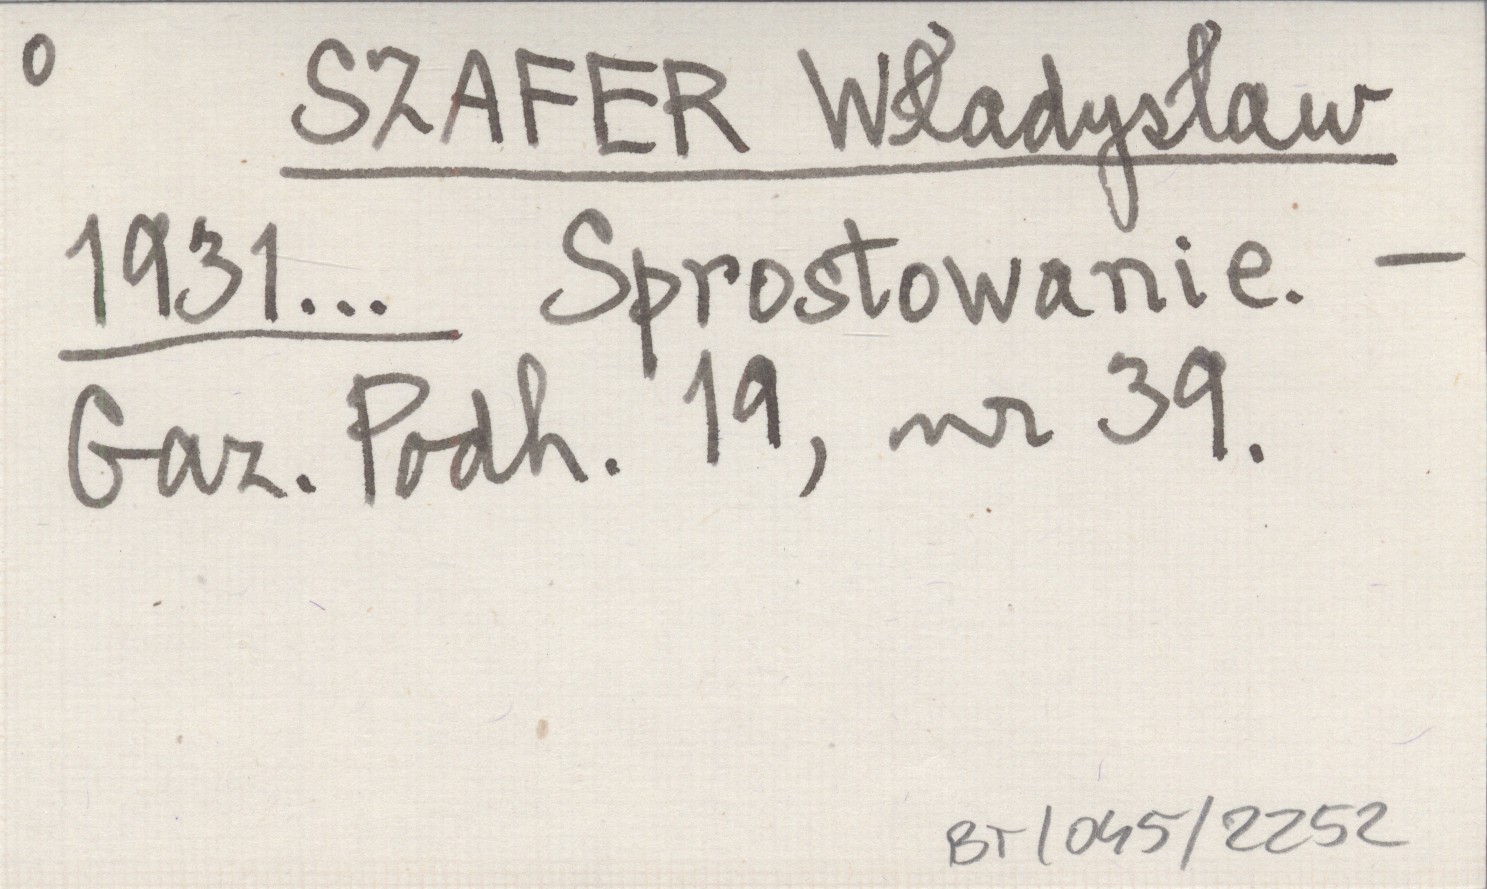 o SZAFER Władysław
1931... Sprostowanie. —
Gaz. Podh. 19, nr 39.
BT/045/2252